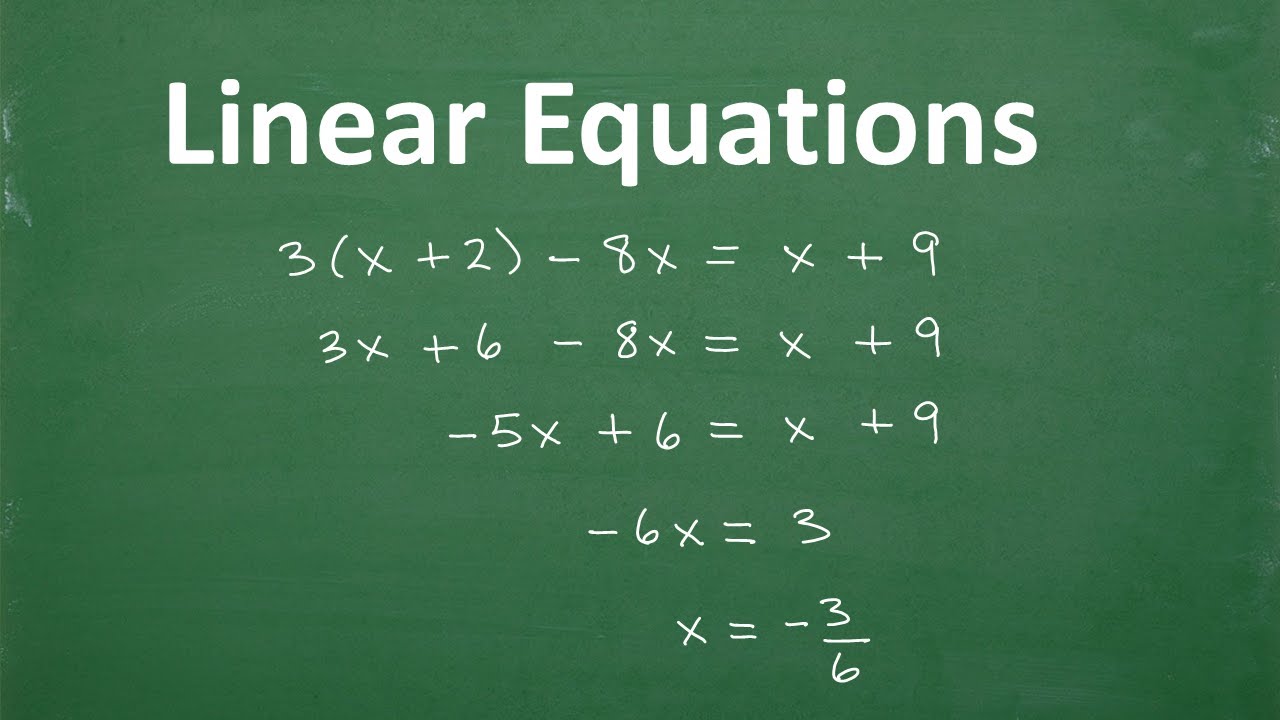 Linear Equations
3(x + 2) - 8x = x + 9
3x + 6 - 8x = x + 9
-5x + 6 = x + 9
-6x = 3
x = -3/6